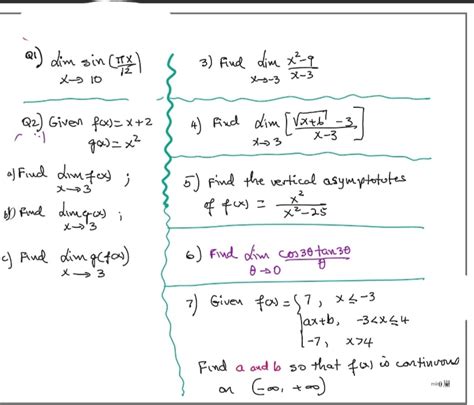 Q1) lim sin (πx/12)
x→10
Q2) Given f(x) = x+2
g(x) = x²
a) Find lim f(x) ;
x→3
b) Find lim g(x) ;
x→3
c) Find lim g(f(x))
x→3
3) Find lim x²-9 / x-3
x→-3
4) Find lim [√x+6 - 3 / x-3]
x→3
5) Find the vertical asymptotutes
of f(x) = x² / x²-25
6) Find lim cos3θ tan3θ / θ
θ→0
7) Given f(x) = { 7, x ≤ -3
ax+b, -3<x≤4
-7, x>4
Find a and b so that f(x) is continuous
on (-∞, +∞)